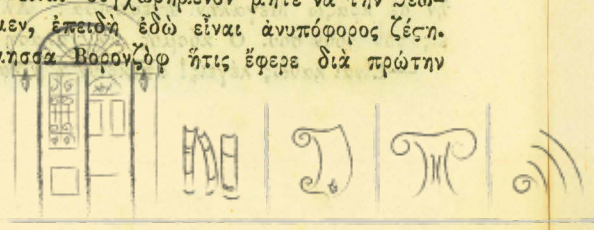 συγχωρημένον μήτε νὰ τὴν
μεν, ἐπειδὴ ἐδὼ εἶναι ἀνυπόφορος ζέςη.
μησσα Βορονζὸφ ἥτις ἔφερε διὰ πρώτην